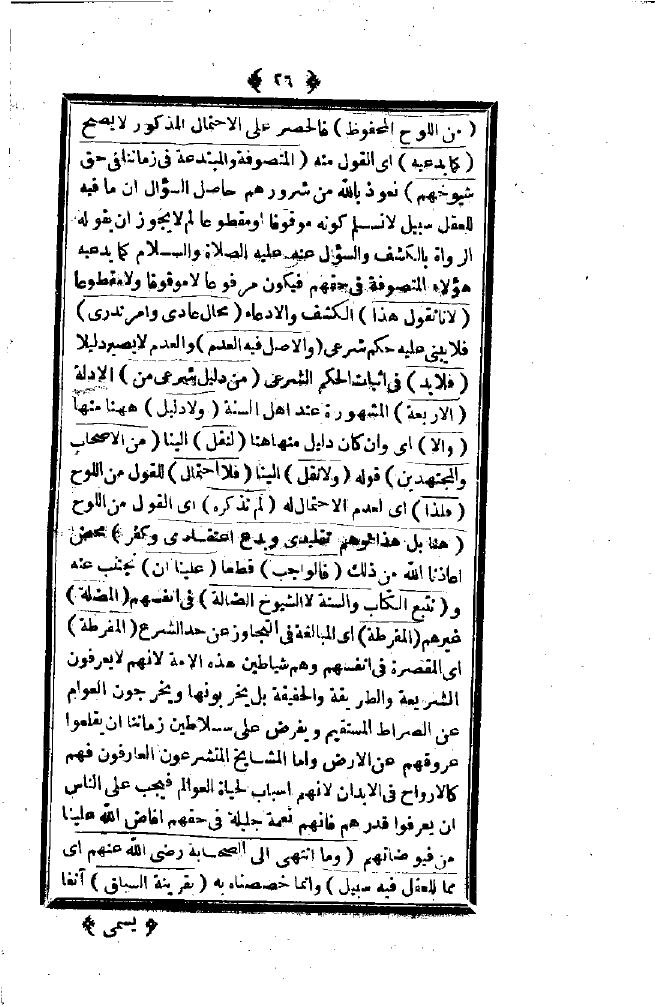 ﴿ ٢٦ ﴾
( من اللوح المحفوظ ) فالحصر على الاحتمال المذكور لا يصح
( كما يدعيه ) اى القول منه ( المتصوفة والمبتدعة فى زماننا فى حق
شيوخهم ) نعوذ بالله من شرورهم حاصل السؤال ان ما فيه
للعقل سبيل لا نسلم كونه موقوفا او مقطوعا لم لا يجوز ان يقوله
الرواة بالكشف والسؤل عنه عليه الصلاة والسلام كما يدعيه
هؤلاء المتصوفة فى حقهم فيكون مرفوعا لا موقوفا ولا مقطوعا
( لانا نقول هذا ) الكشف والادعاء ( محال عادى وامر ندرى )
فلا يبنى عليه حكم شرعى ( والاصل فيه العدم ) والعدم لا يصير دليلا
( فلابد ) فى اثبات الحكم الشرعى ( من دليل شرعى من ) الادلة
( الاربعة ) المشهورة عند اهل السنة ( ولا دليل ) ههنا منها
( والا ) اى وان كان دليل منها هنا ( لنقل ) الينا ( من الاصحاب
والمجتهدين ) قوله ( ولا نقل ) الينا ( فلا احتمال ) للقول من اللوح
( فلذا ) اى لعدم الاحتمال له ( لم نذكره ) اى القول من اللوح
( هنا بل هذا توهم تقليدى وبدع اعتقادى وكفر ) محض
اعاذنا الله من ذلك ( فالواجب ) قطعا ( علينا ان ) نجتنب عنه
و ( نتبع الكتاب والسنة لا الشيوخ الضالة ) فى انفسهم ( المضلة )
غيرهم ( المفرطة ) اى المبالغة فى التجاوز عن حد الشرع ( المفرطة )
اى المقصرة فى انفسهم وهم شياطين هذه الامة لانهم لا يعرفون
الشريعة والطريقة والحقيقة بل يخربونها ويخرجون العوام
عن الصراط المستقيم ويفرض على سلاطين زماننا ان يقلعوا
عروقهم عن الارض واما المشايخ المتشرعون العارفون فهم
كالارواح فى الابدان لانهم اسباب لحياة العوالم فيجب على الناس
ان يعرفوا قدرهم فانهم نعمة جليلة فى حقهم افاض الله علينا
من فيوضاتهم ( وما انتهى الى الصحابة رضى الله عنهم اى
مما للعقل فيه سبيل ) وانما خصصناه به ( بقرينة السباق ) آنفا
﴿ يسمى ﴾